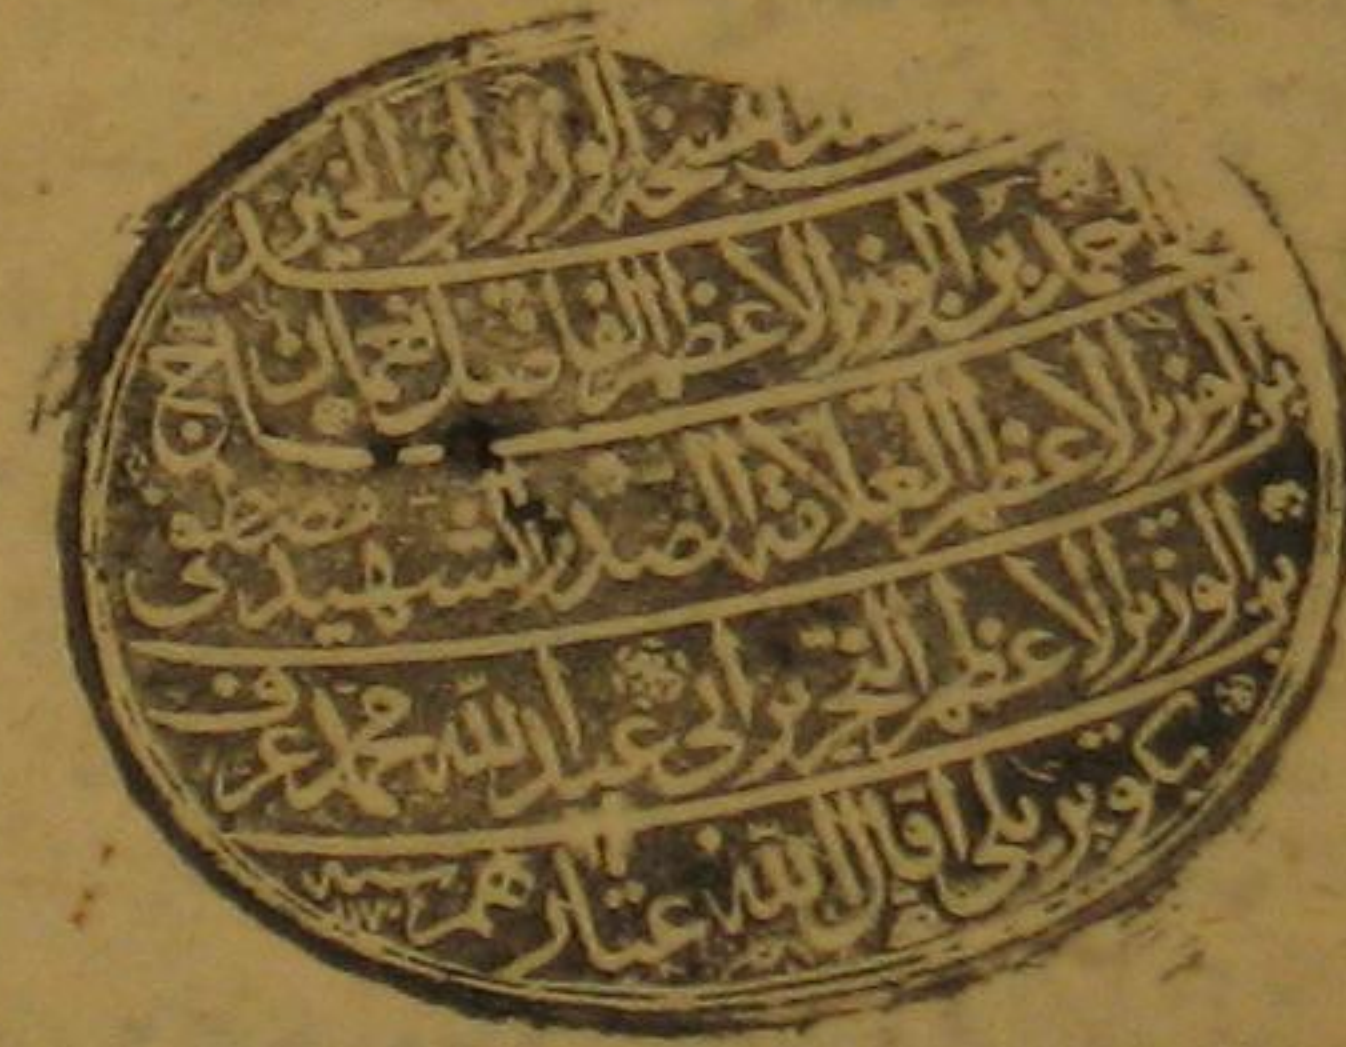 النسخة الوزير ابو الخير
احمد بن الوزير الاعظم الفاضل نعمان
بن الوزير الاعظم العلامة الصدر الشهيد مصطفى
بن الوزير الاعظم النحرير ابي عبد الله محمد عرف
بكوبريلي اقال الله عثارهم سنه ١١٧٠